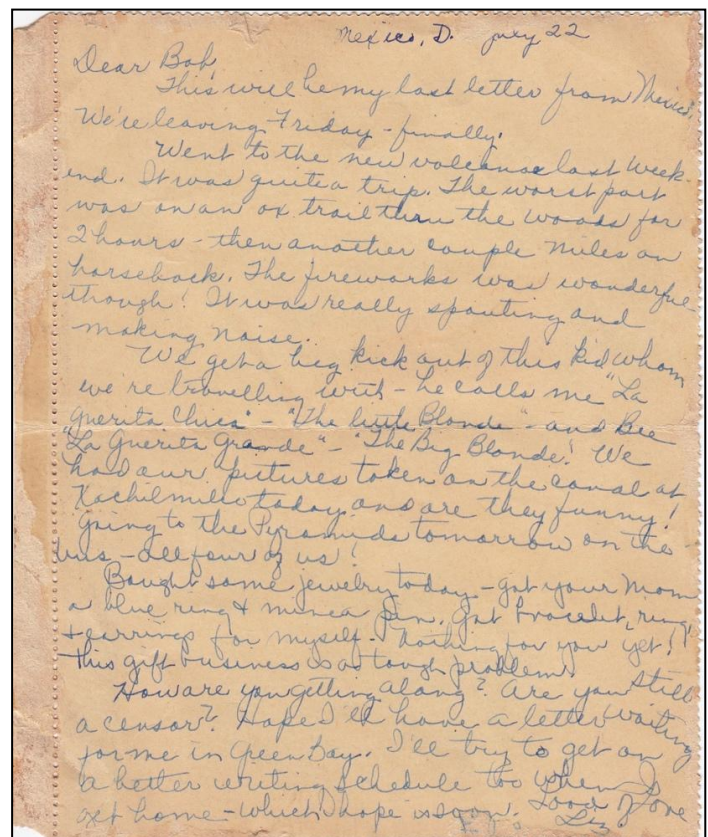 Mexico, D. July 22
Dear Bob,
This will be my last letter from Mexico.
We're leaving Friday - finally.
Went to the new volcanoe last week-
end. It was quite a trip. The worst part
was on an ox trail thru the woods for
2 hours - then another couple miles on
horseback. The fireworks was wonderful
though! It was really spouting and
making noise.
We get a big kick out of this kid whom
we're travelling with - he calls me "La
Guerita Chica" - "The little Blonde" - and Bee
"La Guerita Grande" - "The Big Blonde! We
had our pictures taken on the canal at
Xochilmilco today and are they funny!
Going to the Pyramids tomorrow on the
bus - all four of us!
Bought some jewelry today - got your Mom
a blue ring & a pin. Got bracelet, ring,
& earrings for myself. Nothing for you yet!
This gift business is a tough problem.
How are you getting along? Are you still
a censor? Hope I'll have a letter waiting
for me in Green Bay. I'll try to get on
a better writing schedule too when I
get home - which I hope is soon. Loads of Love
Liz